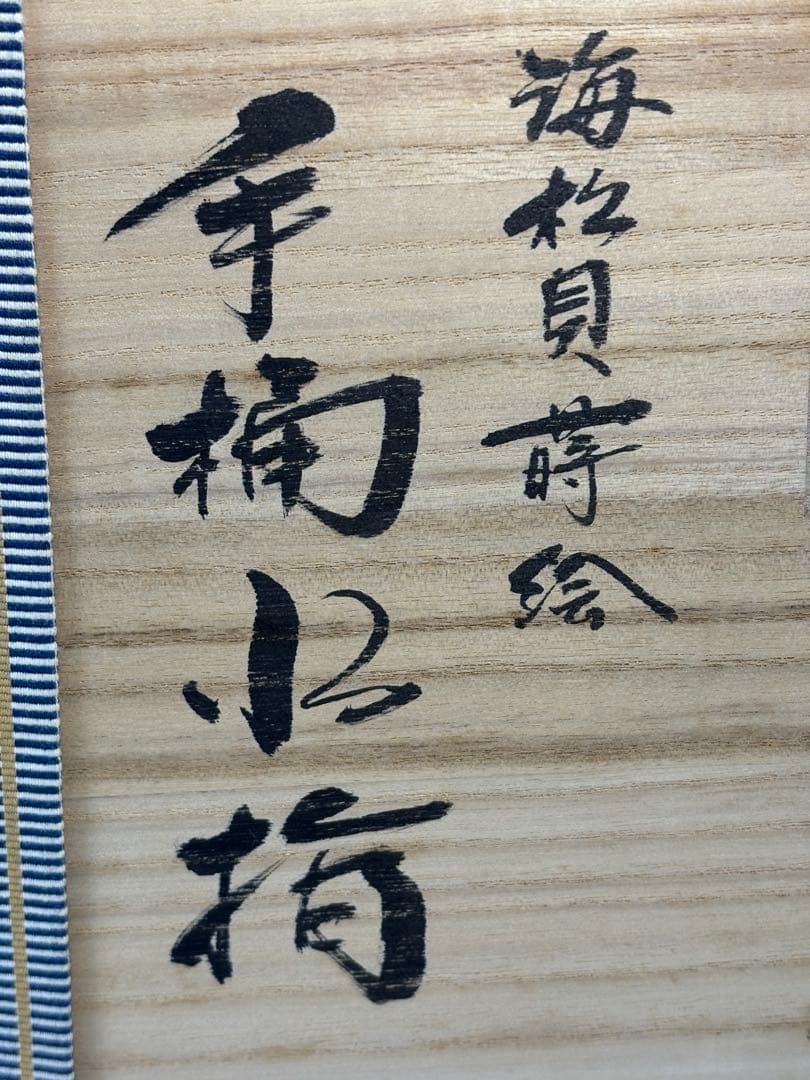 海松貝蒔絵
手桶水指